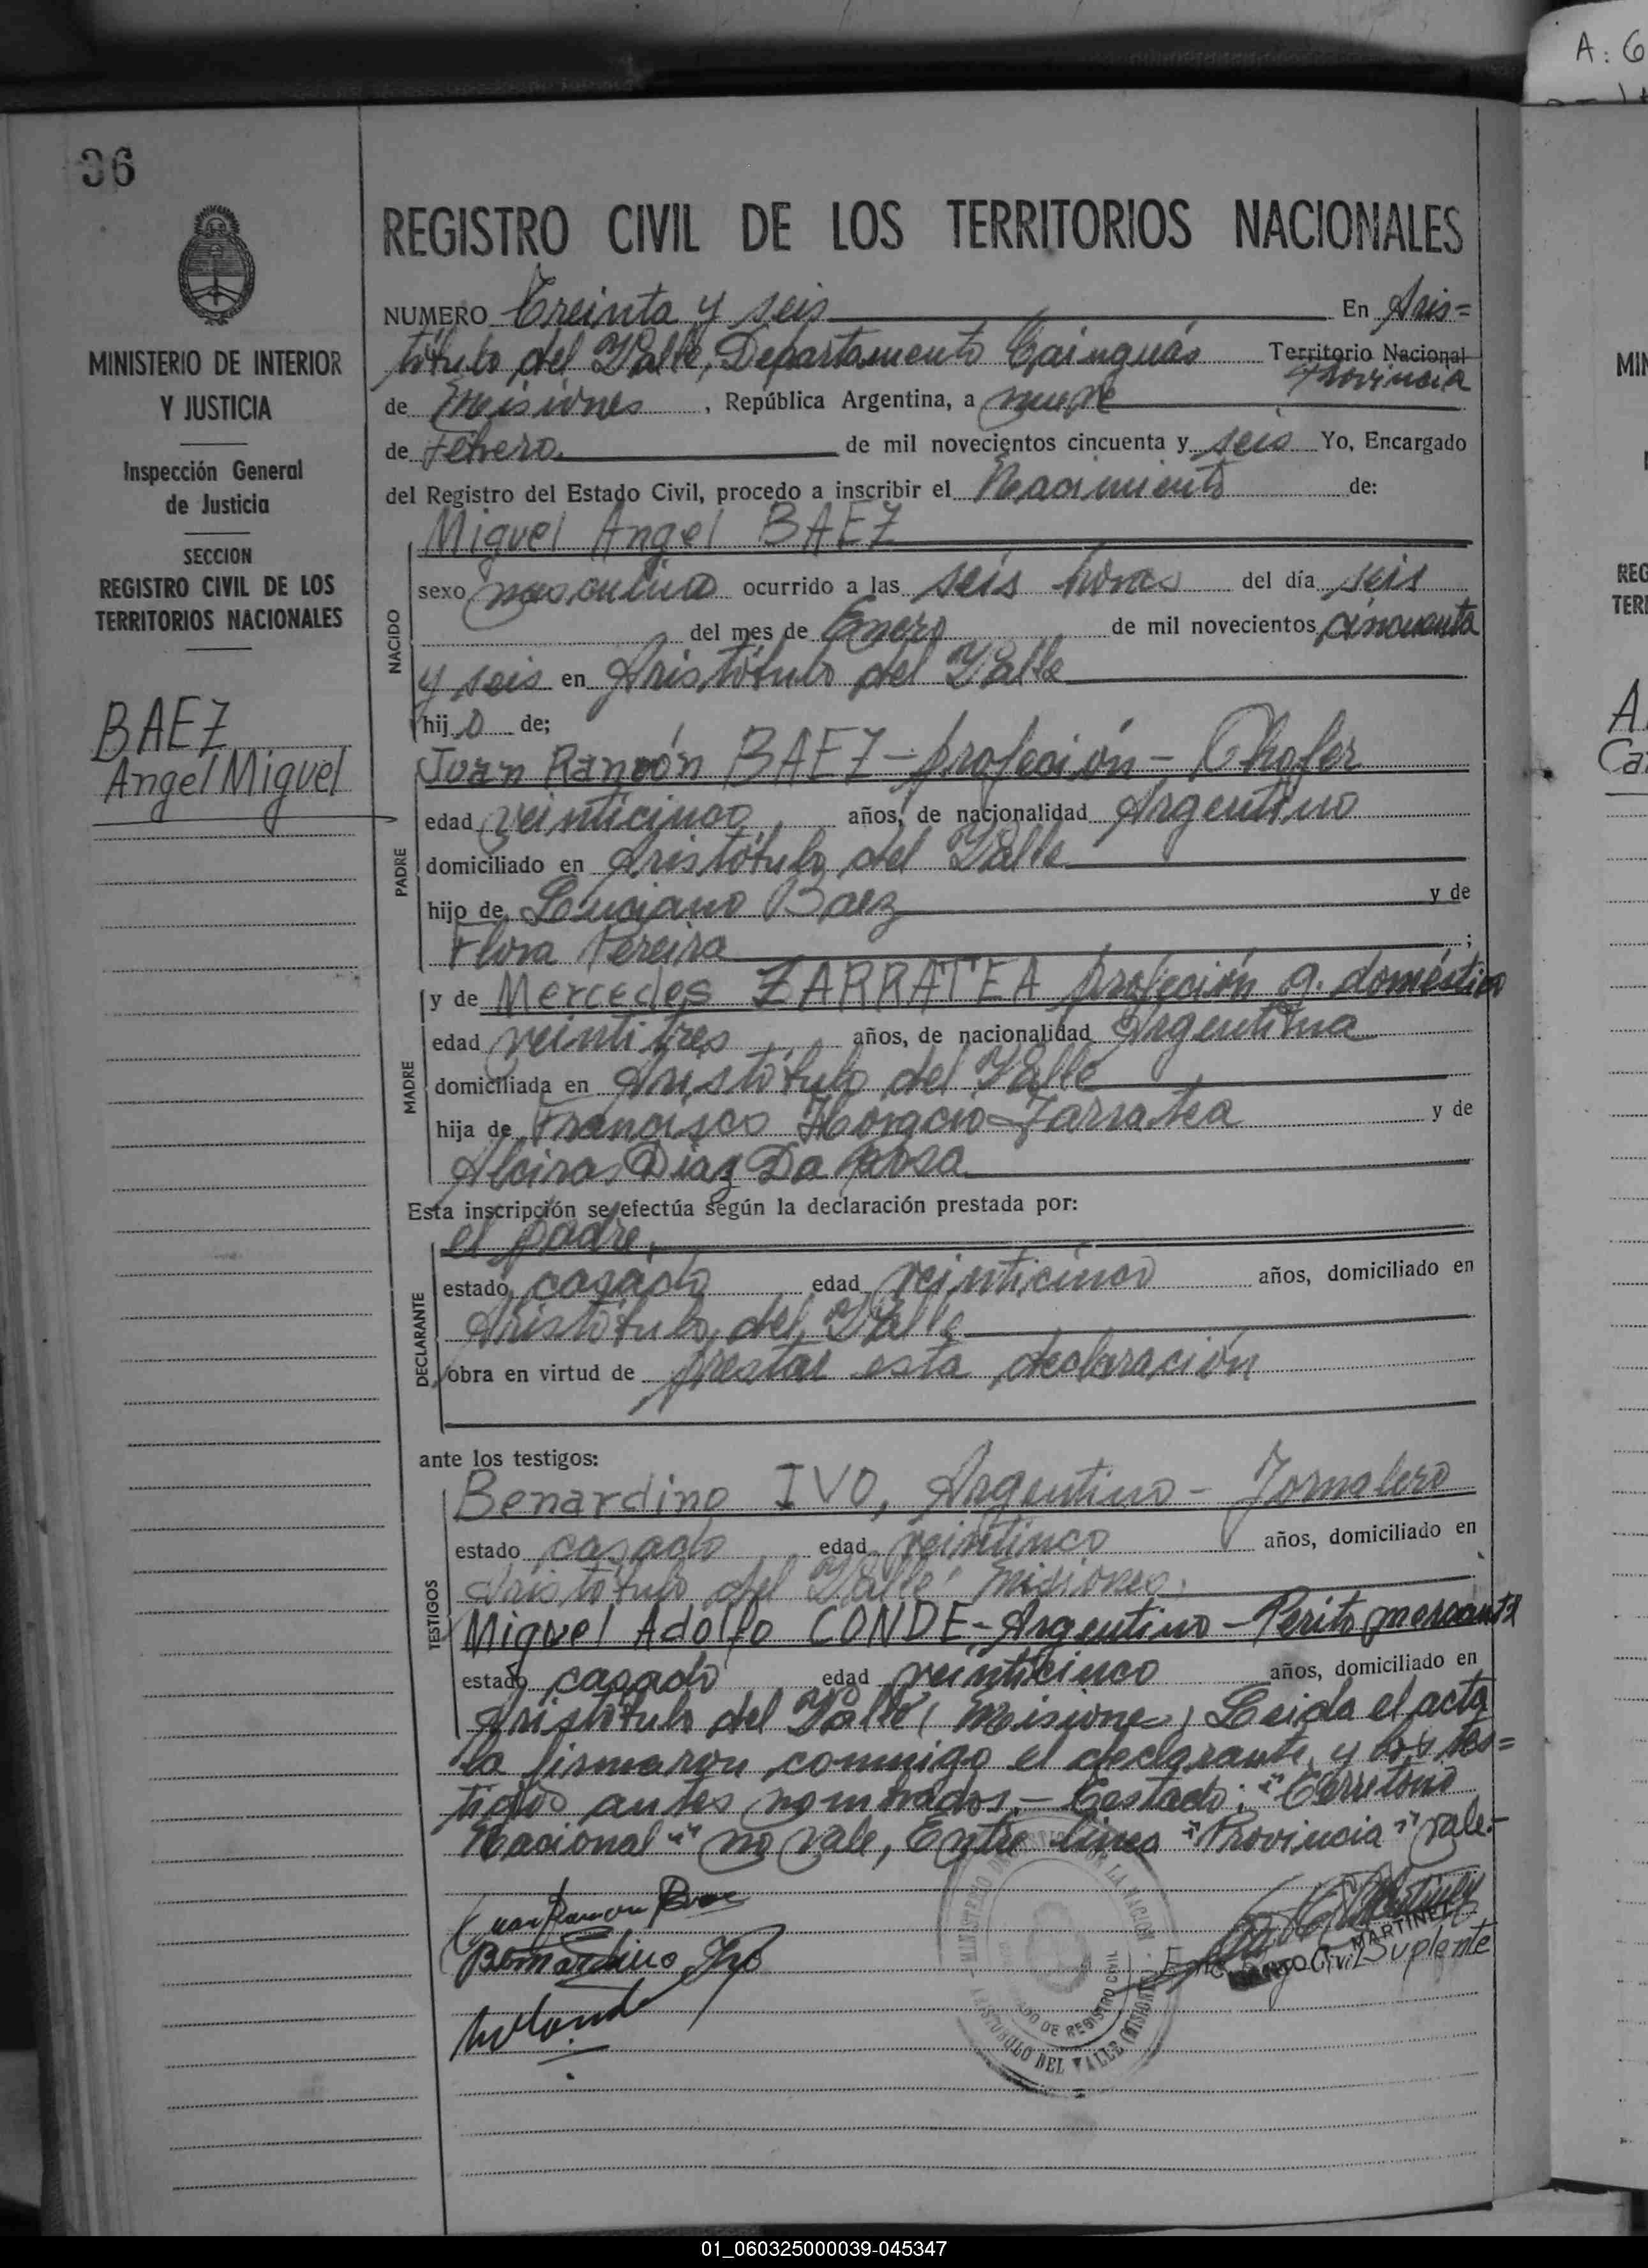 A: 6
36
REGISTRO CIVIL DE LOS TERRITORIOS NACIONALES
MINISTERIO DE INTERIOR
Y JUSTICIA
Inspección General
de Justicia
SECCION
REGISTRO CIVIL DE LOS
TERRITORIOS NACIONALES
BAEZ
Angel Miguel
NUMERO Treinta y seis En Aris=
tótulo del Valle, Departamento Cainguás Territorio Nacional
Provincia
de Misiones, República Argentina, a nueve
de Febrero. de mil novecientos cincuenta y seis Yo, Encargado
del Registro del Estado Civil, procedo a inscribir el Nacimiento de:
NACIDO
Miguel Angel BAEZ
sexo masculino ocurrido a las seis horas del día seis
del mes de Enero de mil novecientos cincuenta
y seis en Aristótulo del Valle
hijo de;
PADRE
Juan Ramón BAEZ - profeción - Chofer
edad veinticinco años, de nacionalidad Argentino
domiciliado en Aristótulo del Valle
hijo de Luciano Baez y de
Flora Pereira ;
MADRE
y de Mercedes ZARRATEA profeción q. doméstico
edad veintitres años, de nacionalidad Argentina
domiciliada en Aristótulo del Valle
hija de Francisco Horacio Zarratea y de
Alcira Diaz Da Rosa
Esta inscripción se efectúa según la declaración prestada por:
DECLARANTE
el padre,
estado casado edad veinticinco años, domiciliado en
Aristótulo del Valle
obra en virtud de prestar esta declaración
ante los testigos:
TESTIGOS
Benardino IVO, Argentino - Jornalero
estado casado edad veintinco años, domiciliado en
Aristótulo del Valle Misiones,
Miguel Adolfo CONDE - Argentino - Perito mercantil
estado casado edad veinticinco años, domiciliado en
Aristótulo del Valle (Misiones) Leida el acta
la firmaron conmigo el declarante y los tes=
tigos antes nombrados.- Testado: "Territorio
Nacional" no vale, Entre linea "Provincia" vale.-
Juan Ramon Baez
Bernardino Ivo
MARTINEZ
Civil Suplente
MINISTERIO DE LA NACION
DE REGISTRO CIVIL
ARISTOBULO DEL VALLE (MISIONES)
01_060325000039-045347